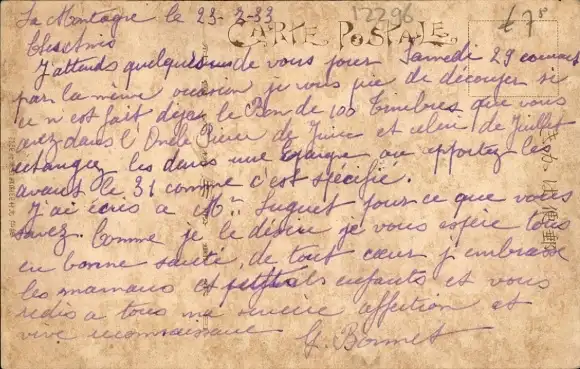 12296
£ 7
La Montagne le 23-7-33
CARTE POSTALE
Chers Amis
J'attends quelques uns de vous pour Samedi 29 courant
par la même occasion je vous prie de découper si
ce n'est fait déjà le Bon de 100 timbres que vous
avez dans l'Oncle Pierre de Juin et celui de Juillet
échangez les dans une Epargne ou apportez les
avant le 31 comme c'est spécifié.
J'ai écris a M Huguet pour ce que vous
savez. Comme je le désire je vous espère tous
en bonne santé, de tout cœur j'embrasse
les mamans et petits enfants et vous
redis a tous ma sincère affection et
vive reconnaissance G. Bonnet